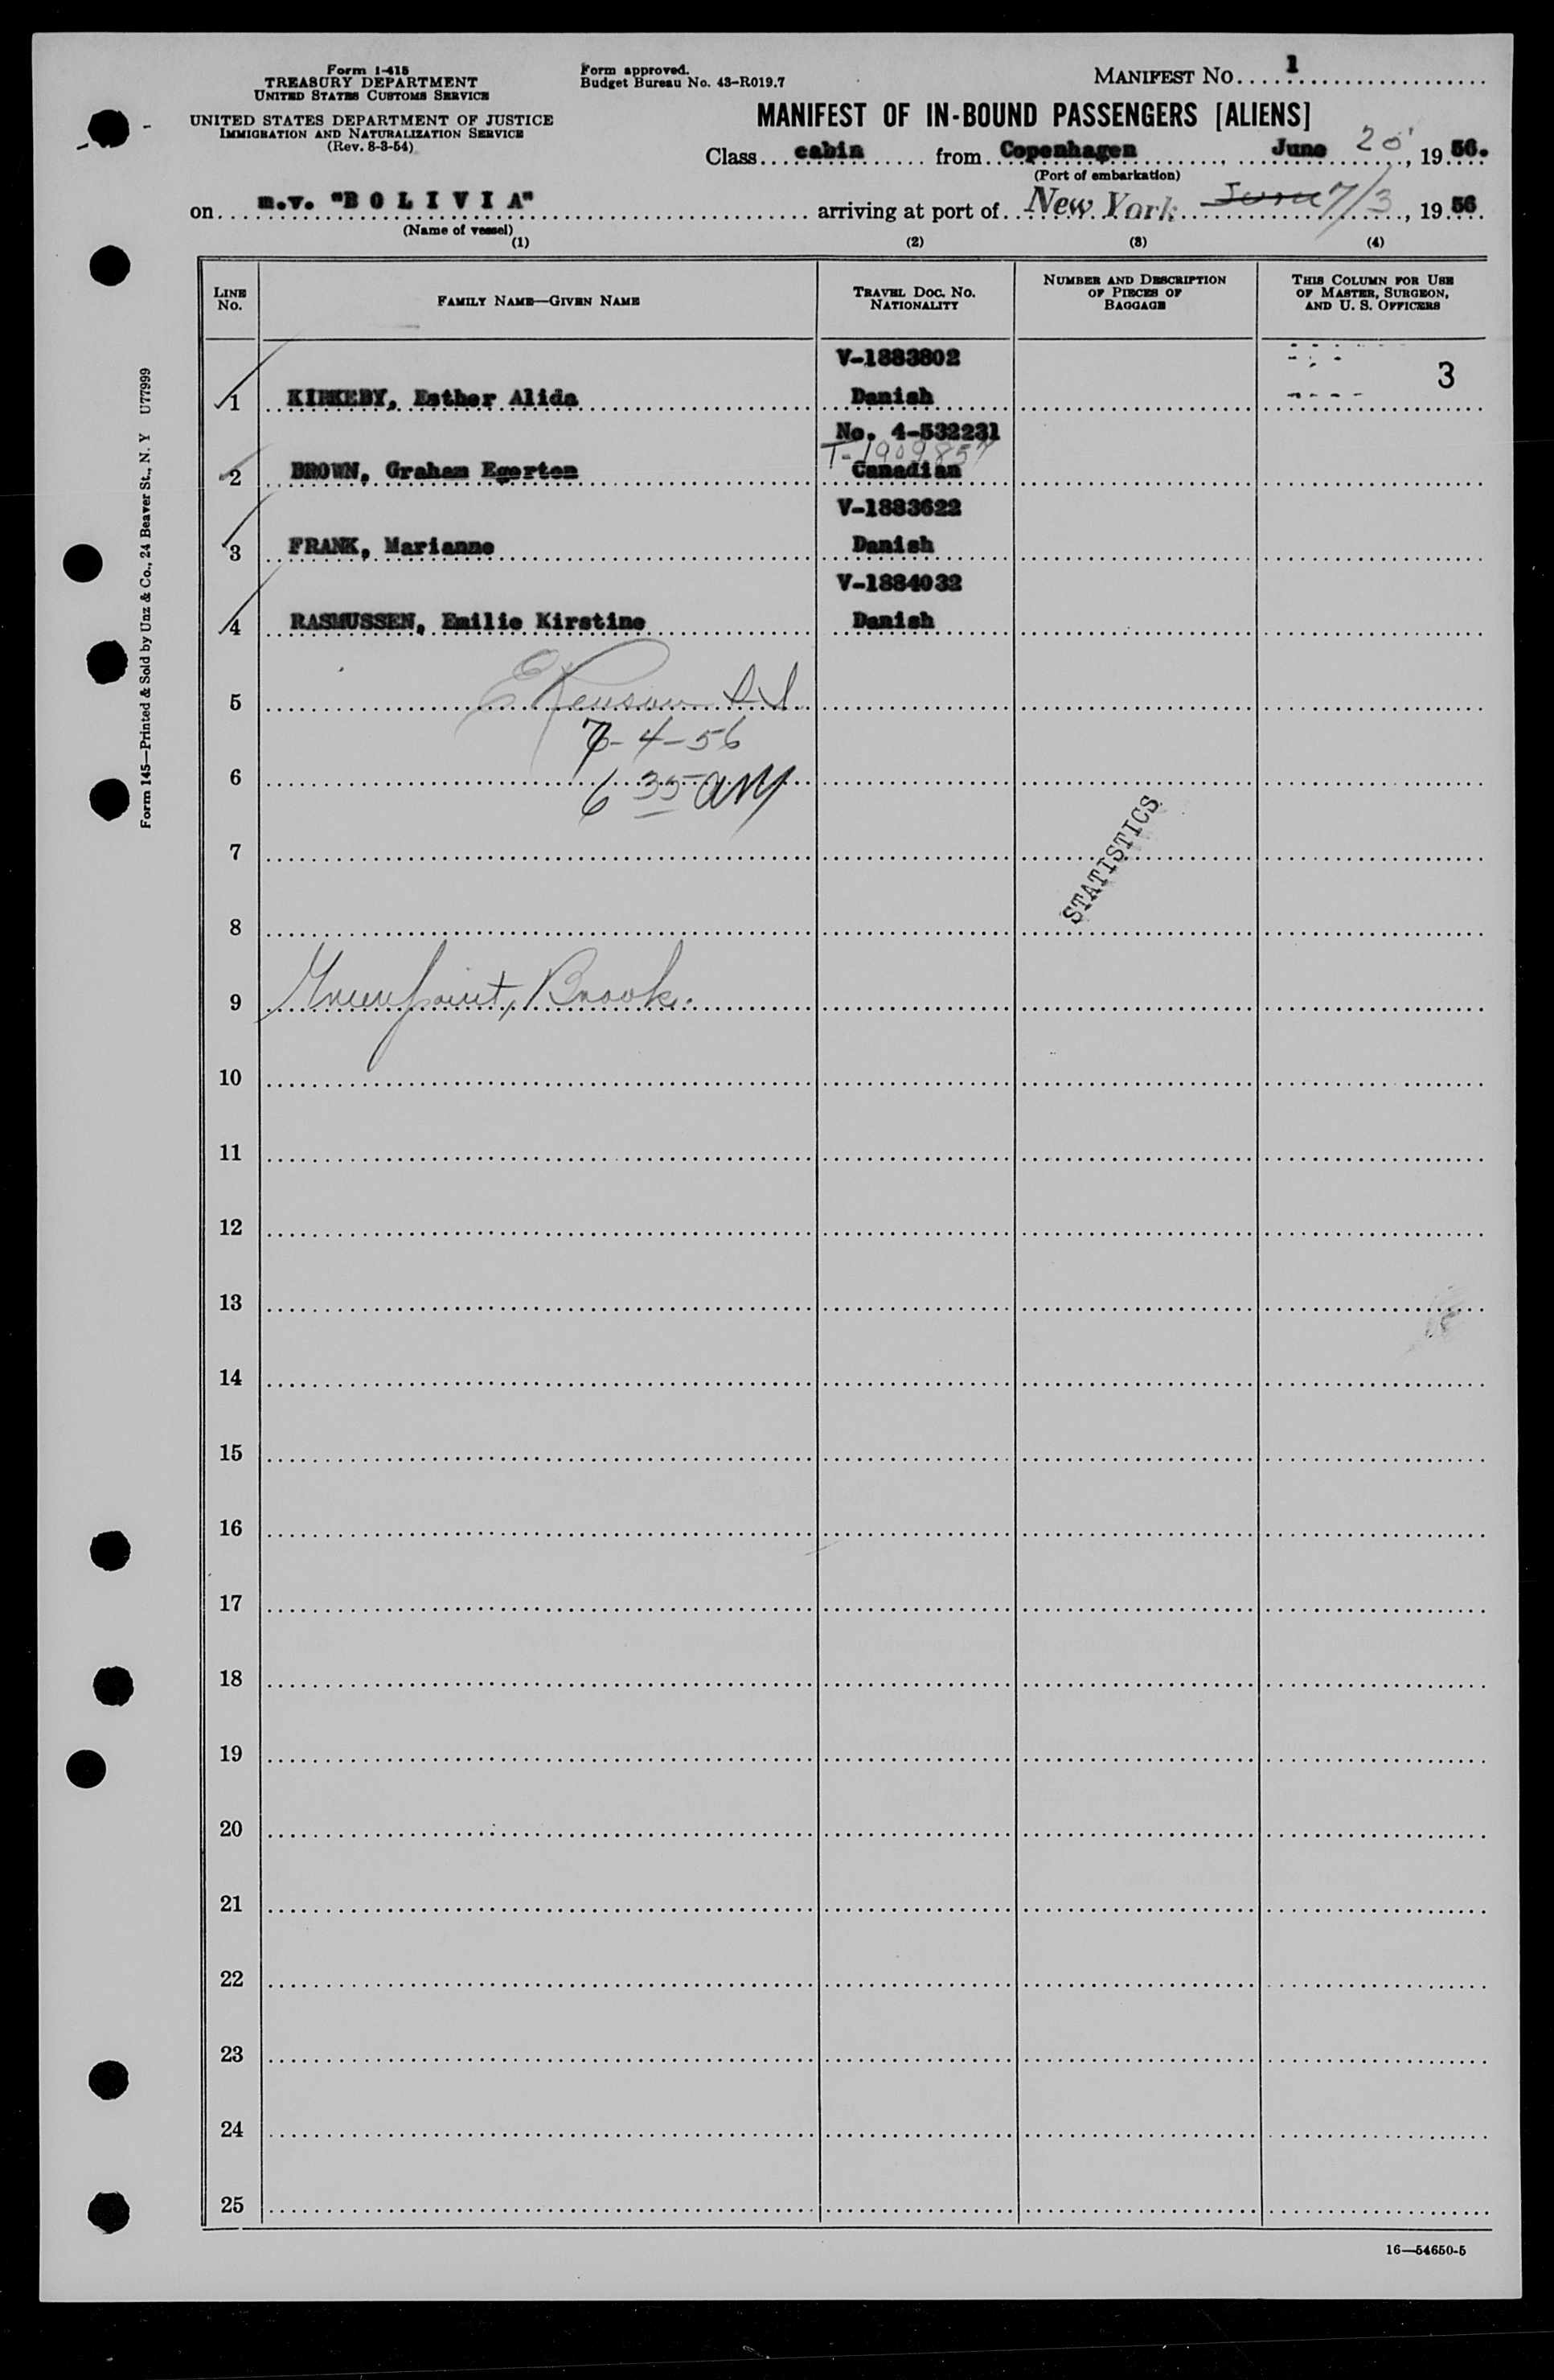 Form I-418
TREASURY DEPARTMENT
UNITED STATES CUSTOMS SERVICE
UNITED STATES DEPARTMENT OF JUSTICE
IMMIGRATION AND NATURALIZATION SERVICE
(Rev. 8-3-54)
Form approved.
Budget Bureau No. 43-R019.7
MANIFEST NO. 1
MANIFEST OF IN-BOUND PASSENGERS [ALIENS]
Class cabin from Copenhagen, June 20, 19 56.
(Port of embarkation)
on m.v. "B O L I V I A" arriving at port of New York June 7/3, 19 56
(Name of vessel)
(1) (2) (3) (4)
LINE No. FAMILY NAME—GIVEN NAME TRAVEL DOC. NO. NATIONALITY NUMBER AND DESCRIPTION OF PIECES OF BAGGAGE THIS COLUMN FOR USE OF MASTER, SURGEON, AND U. S. OFFICERS
V-1883802
3
1 KIRKEBY, Esther Alida Danish
No. 4-532231
T-1909857
2 BROWN, Graham Egerton Canadian
V-1883622
3 FRANK, Marianne Danish
V-1884032
4 RASMUSSEN, Emilie Kirstine Danish
5
7-4-56
6
6 35 AM
7
STATISTICS
8
9 Greenpoint, Brook.
10
11
12
13
14
15
16
17
18
19
20
21
22
23
24
25
16—54650-5
Form 145—Printed & Sold by Unz & Co., 24 Beaver St., N. Y U77999